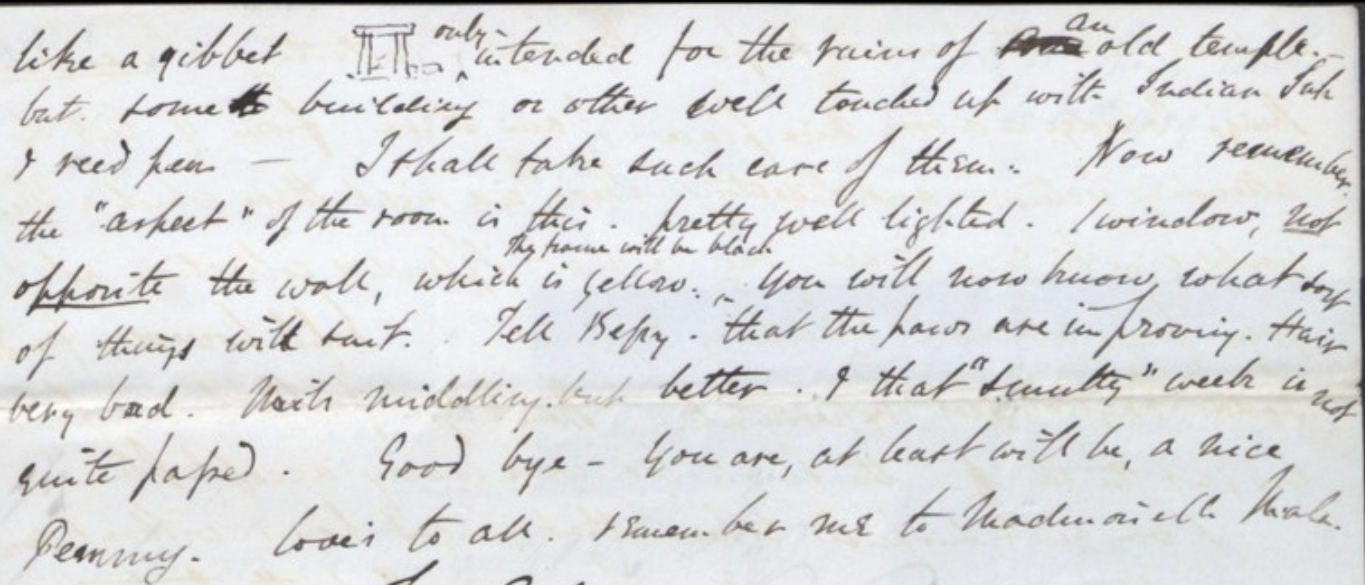 like a gibbet only intended for the ruins of an old temple.-
but some building or other well touched up with Indian Ink
& reed pen — I shall take such care of them. Now remember
the "aspect" of the room is this. pretty well lighted. 1 window, not
The frame will be black.
opposite the wall, which is yellow. You will now know what sort
of things will suit. Tell Bessy. that the paws are improving. Hair
very bad. Nails middling. but better. & that "smutty" week is not
quite passed. Good bye - You are, at least will be, a nice
Pemmy. Loves to all. remember me to Madmoiselle